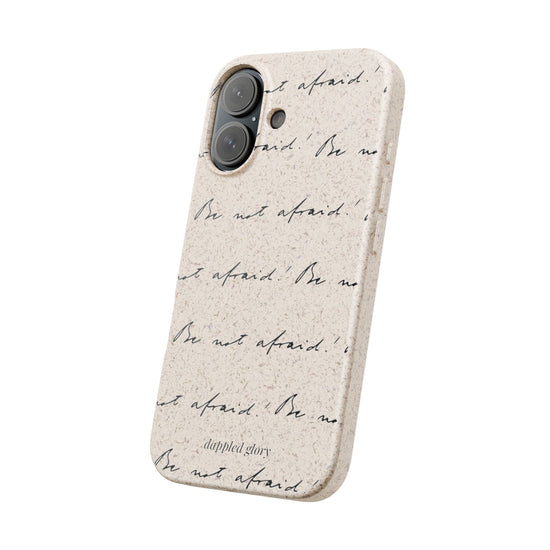 not afraid!
afraid! Be no
Be not afraid!
not afraid! Be no
Be not afraid!
not afraid! Be no
dappled glory
Be not afraid!